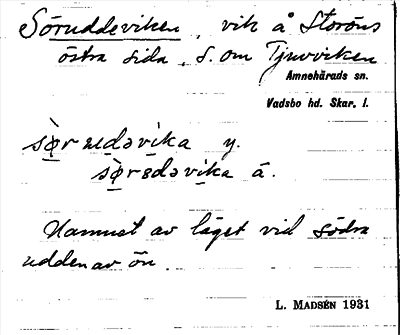 Söruddeviken, vik å Storöns
östra sida, S. om Tjuvviken
Amnehärads sn.
Vadsbo hd. Skar. l.
sø̀r ʉdəvika y.
sø̀rɞdəvika ä.
Namnet av läget vid södra
udden av ön.
L. MADSÉN 1931